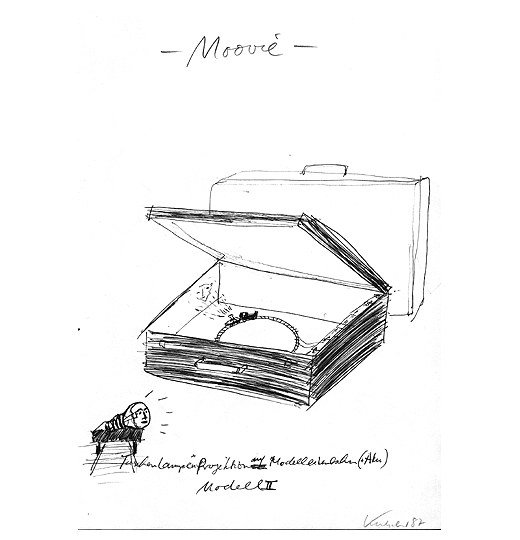 — Moovie —
Taschenlampen Projektion auf Modelleisenbahn (+Akku)
Modell II
87